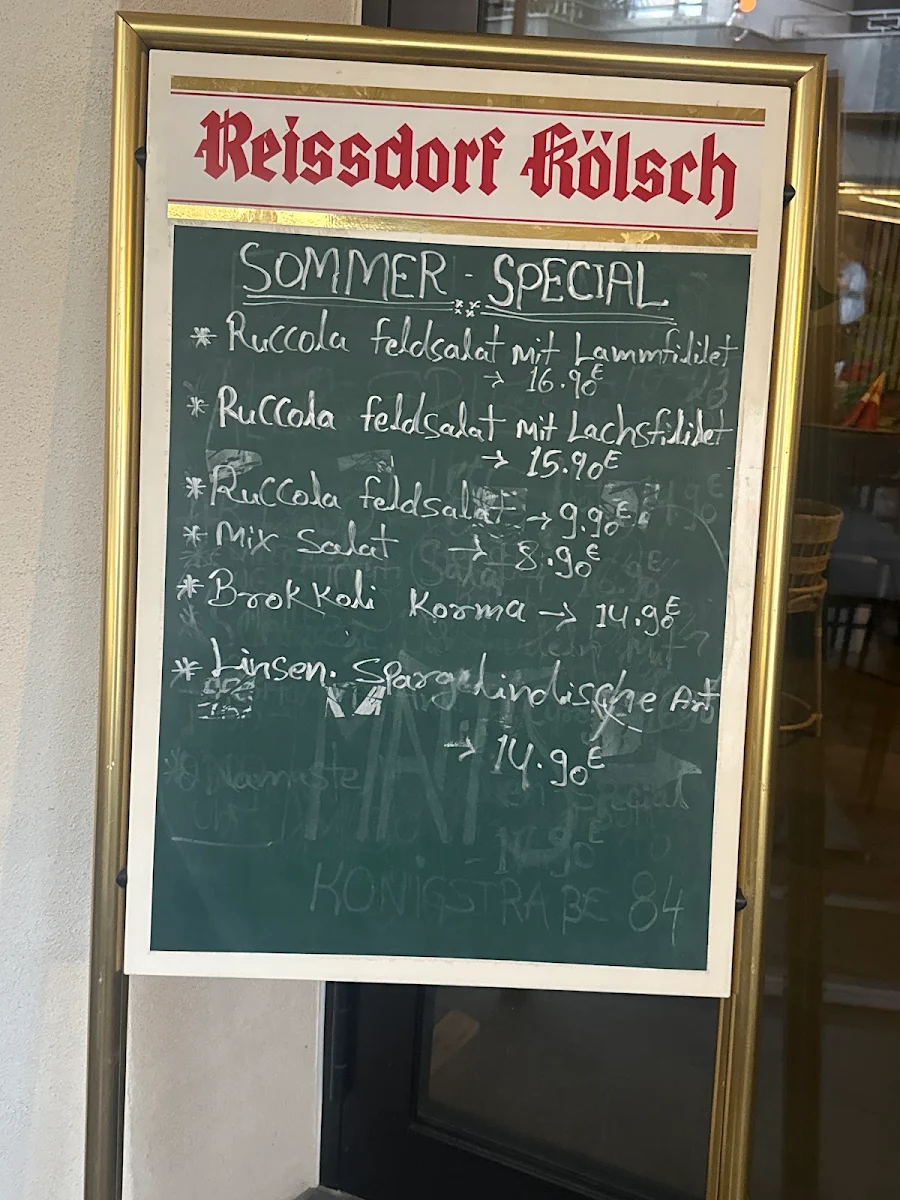 Reissdorf Kölsch
SOMMER - SPECIAL
* Ruccola feldsalat mit Lammfililet
→ 16.90€
* Ruccola feldsalat mit Lachsfilidet
→ 15.90€
* Ruccola feldsalat → 9.90€
* Mix Salat → 8.90€
* Brokkoli Korma → 14.90€
* Linsen. Spargelindische Art
→ 14.90€
KÖNIGSTRAßE 84